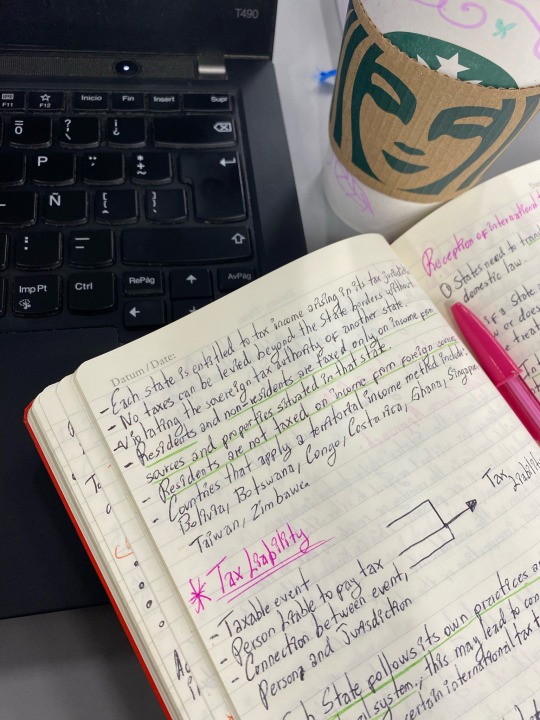 T490
F11
F12
Inicio
Fin
Insert
Supr
P
Ñ
Imp Pt
Ctrl
RePág
AvPág
Datum / Date:
- Each state is entitled to tax income arising in its tax
- No taxes can be levied beyond the State borders without
violating the sovereign tax authority of another state.
- Residents and non-residents are taxed only on income from
sources and properties situated in that state.
- Residents are not taxed on income from foreign source
- Countries that apply a territorial income method include:
Bolivia, Botswana, Congo, Costa rica, Ghana,
Taiwan, Zimbawe
* Tax Liability
- Taxable event
- Person liable to pay tax
- Connection between event,
Person and Jurisdiction
Tax
Liability
State follows its own practices
system, this may lead to
international tax
Reception of international
States need to
domestic law.
is a State
or does